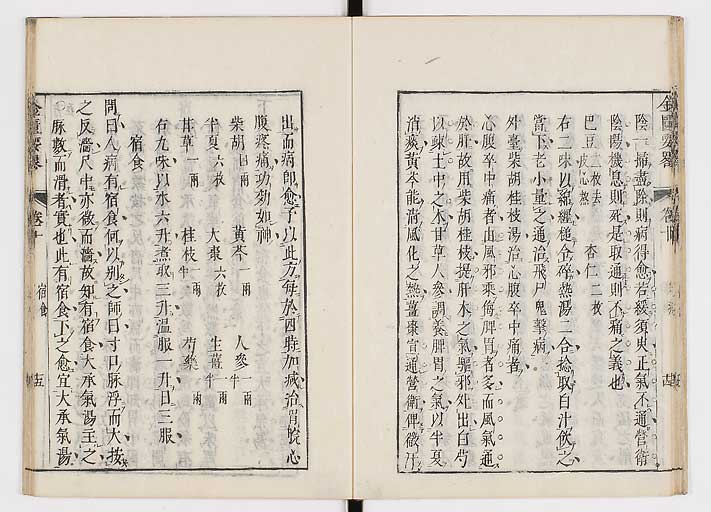 陰一掃盡除則病得愈若緩須臾正氣不通營衛
陰陽機息則死是取通則不痛之義也
巴豆二枚去皮心熬 杏仁二枚
右二味以綿纏槌令碎熱湯二合捻取白汁飲之
當下老小量之通治飛尸鬼擊病
外臺柴胡桂枝湯治心腹卒中痛者
心腹卒中痛者由風邪乘侮脾胃者多而風氣通
於肝故用柴胡桂枝提肝木之氣驅邪外出白芍
以疎土中之木甘草人參調養脾胃之氣以半夏
消痰黃芩能清風化之熱薑棗宣通營衛俾微汗
金匱要畧
出而病即愈予以此方每於四時加減治胃脘心
腹疼痛功効如神
柴胡四兩 黃芩一兩半 人參一兩半
半夏六枚 大棗六枚 生薑一兩半
甘草一兩 桂枝一兩半 芍藥一兩半
右九味以水六升煮取三升溫服一升日三服
宿食
問曰人病有宿食何以別之師曰寸口脉浮而大按
之反濇尺中亦微而濇故知有宿食大承氣湯主之
脉數而滑者實也此有宿食下之愈宜大承氣湯
宿食
五